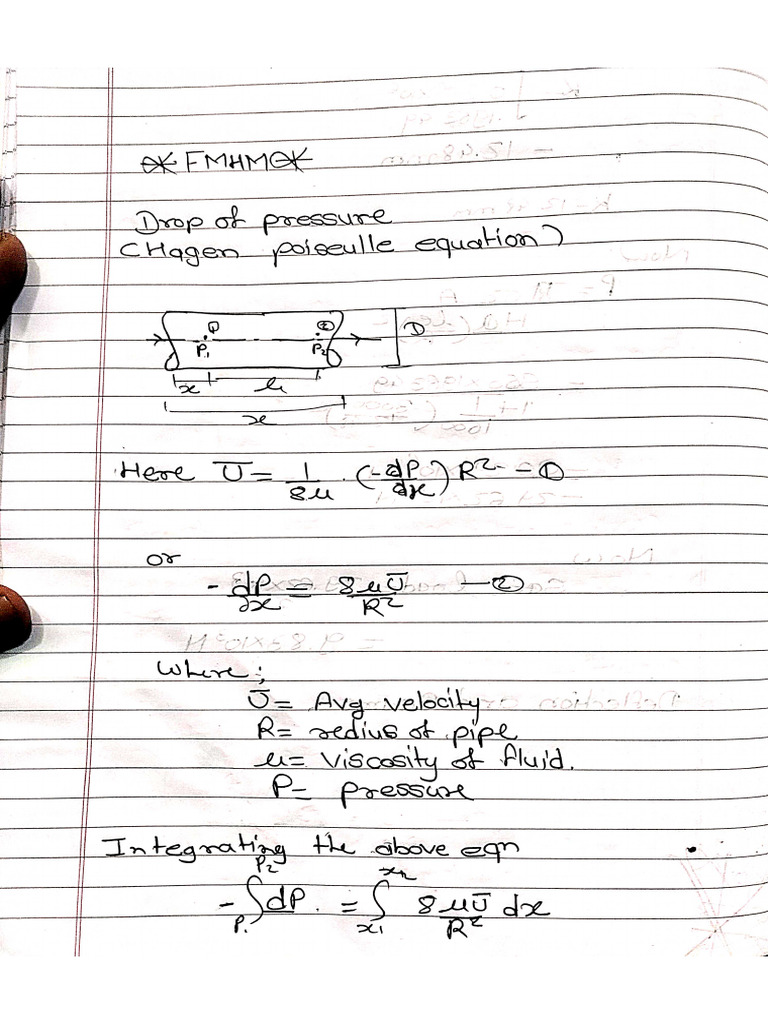 FMHM
Drop of pressure
(Hagen poiseulle equation)
① ② D
P₁ P₂
x L
x
Here Ū = 1/8μ · (-dP/dx) R² - ①
or
- dP/dx = 8μŪ/R² — ②
Where;
Ū = Avg velocity
R = redius of pipe
μ = viscosity of fluid.
P = pressure
Integrating the above eqn
- ∫P₁^P₂ dP. = ∫x₁^x₂ 8μŪ/R² dx